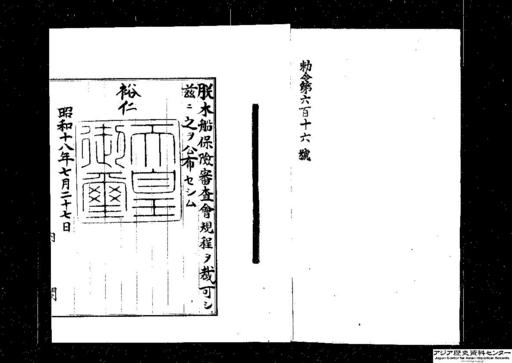 勅令第六百十六號
朕木船保險審査會規程ヲ裁可シ
茲ニ之ヲ公布セシム
裕仁
天皇御璽
昭和十八年七月二十七日
アジア歴史資料センター
Japan Center for Asian Historical Records